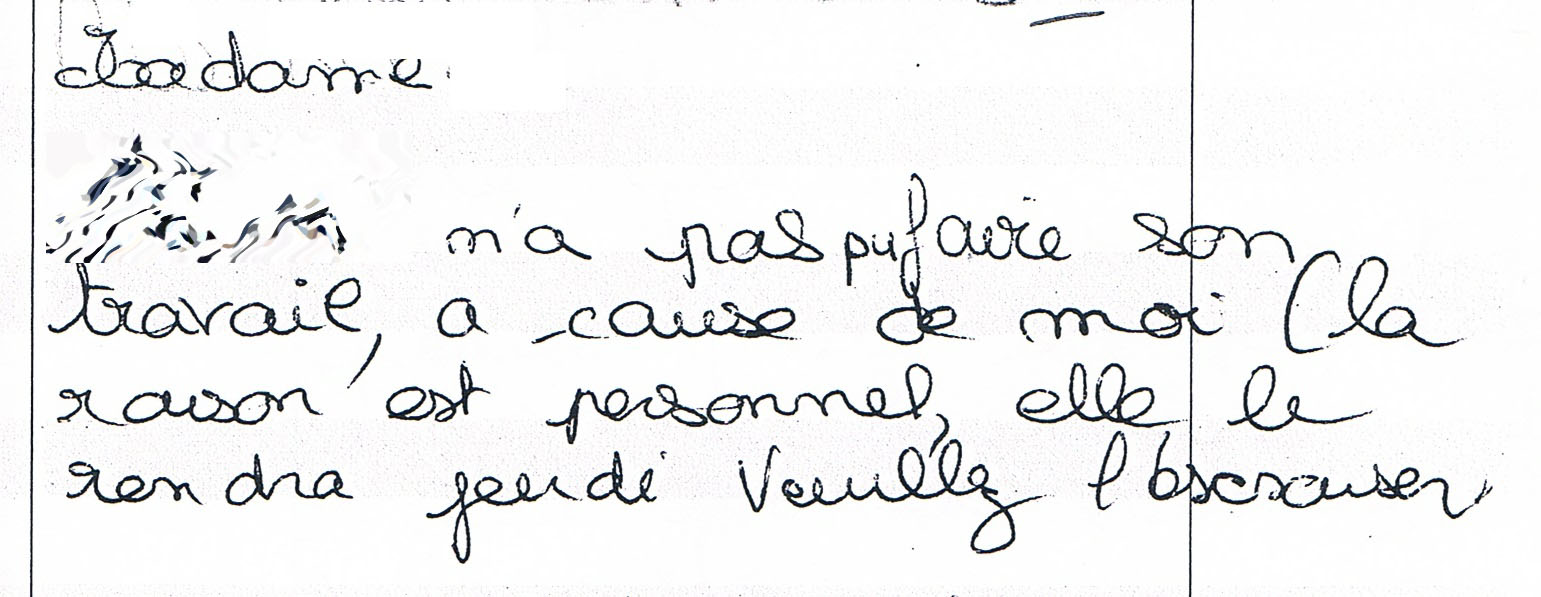 Madame
n'a pas pu faire son
travail, a cause de moi (la
raison est personnel, elle le
rendra jeudi Veuillez